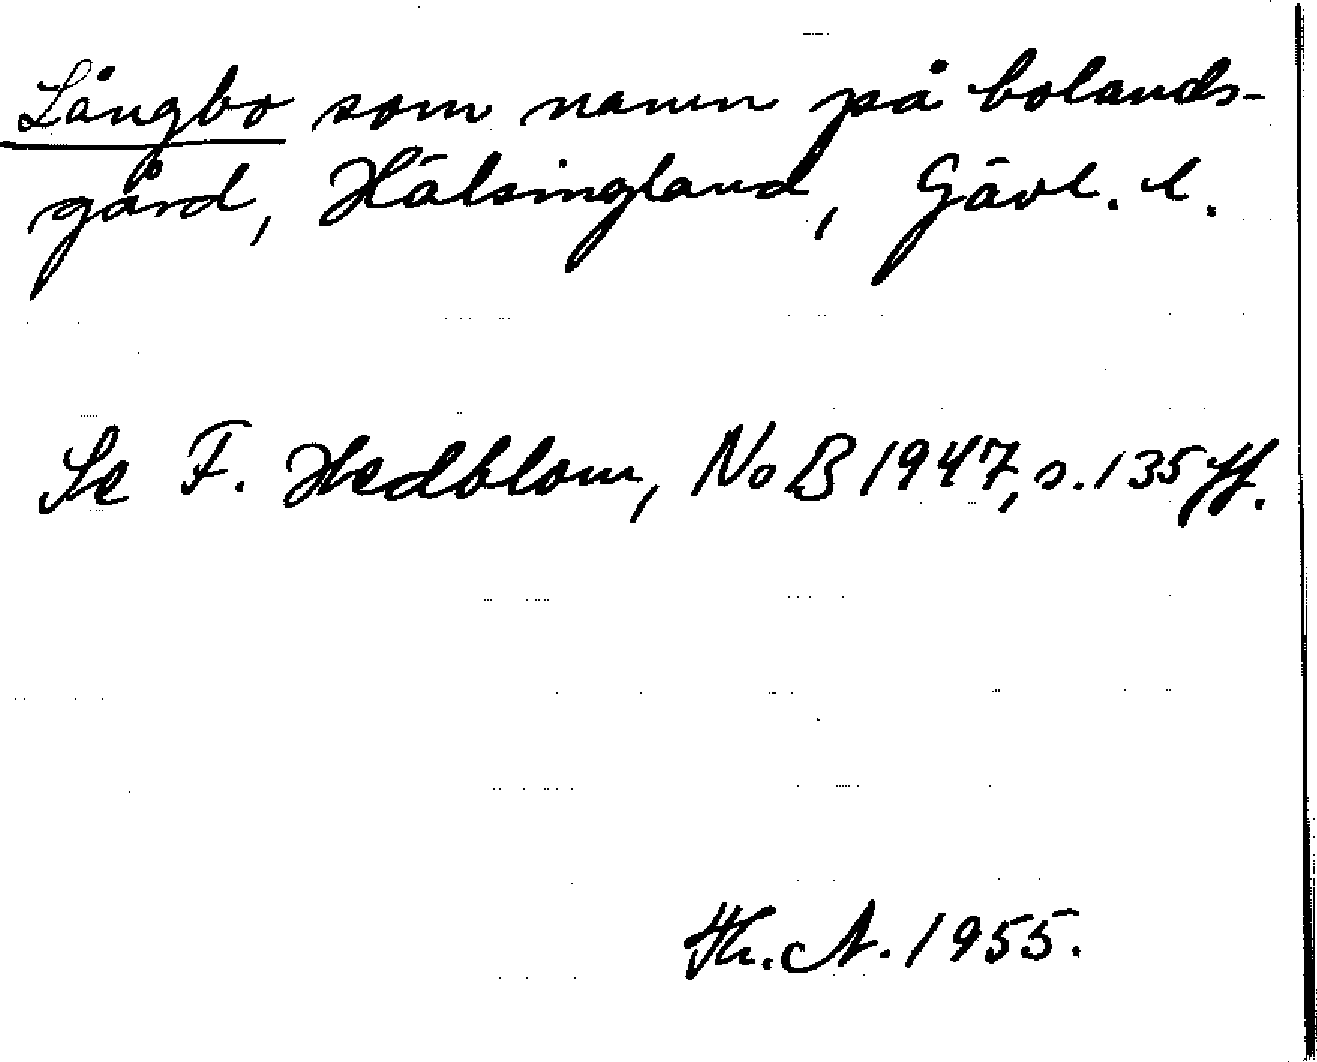 Långbo som namn på bolands-
gård, Hälsingland, Gävl. l.
Se F. Hedblom, NoB 1947, s. 135 ff.
Th. A. 1955.